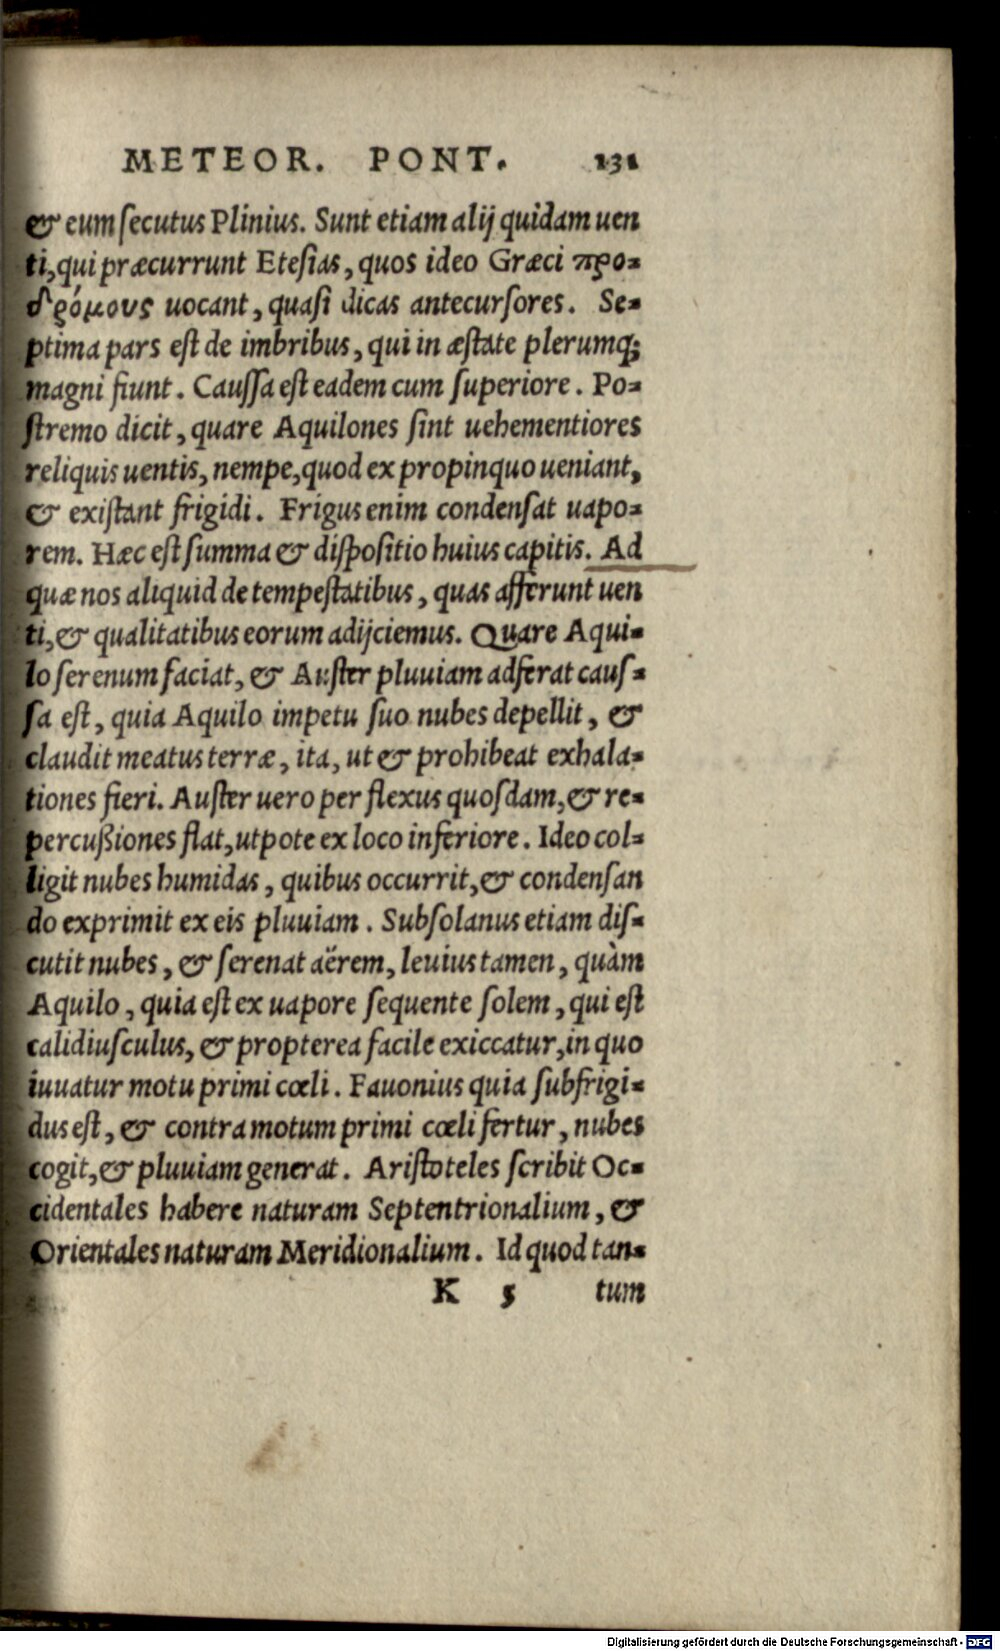 METEOR. PONT. 131
& eum ſecutus Plinius. Sunt etiam alij quidam uen
ti, qui præcurrunt Eteſias, quos ideo Græci προ-
δρόμους uocant, quaſi dicas antecurſores. Se-
ptima pars eſt de imbribus, qui in æſtate plerumq;
magni fiunt. Cauſſa eſt eadem cum ſuperiore. Po-
ſtremo dicit, quare Aquilones ſint uehementiores
reliquis uentis, nempe, quod ex propinquo ueniant,
& exiſtant frigidi. Frigus enim condenſat uapo-
rem. Hæc eſt ſumma & diſpoſitio huius capitis. Ad
quæ nos aliquid de tempeſtatibus, quas afferunt uen
ti, & qualitatibus eorum adijciemus. Quare Aqui-
lo ſerenum faciat, & Auſter pluuiam adferat cauſ-
ſa eſt, quia Aquilo impetu ſuo nubes depellit, &
claudit meatus terræ, ita, ut & prohibeat exhala-
tiones fieri. Auſter uero per flexus quoſdam, & re-
percußiones flat, utpote ex loco inferiore. Ideo col-
ligit nubes humidas, quibus occurrit, & condenſan
do exprimit ex eis pluuiam. Subſolanus etiam diſ-
cutit nubes, & ſerenat aërem, leuius tamen, quàm
Aquilo, quia eſt ex uapore ſequente ſolem, qui eſt
calidiuſculus, & propterea facile exiccatur, in quo
iuuatur motu primi cœli. Fauonius quia ſubfrigi-
dus eſt, & contra motum primi cœli fertur, nubes
cogit, & pluuiam generat. Ariſtoteles ſcribit Oc-
cidentales habere naturam Septentrionalium, &
Orientales naturam Meridionalium. Id quod tan-
K 5 tum
Digitalisierung gefördert durch die Deutsche Forschungsgemeinschaft - DFG